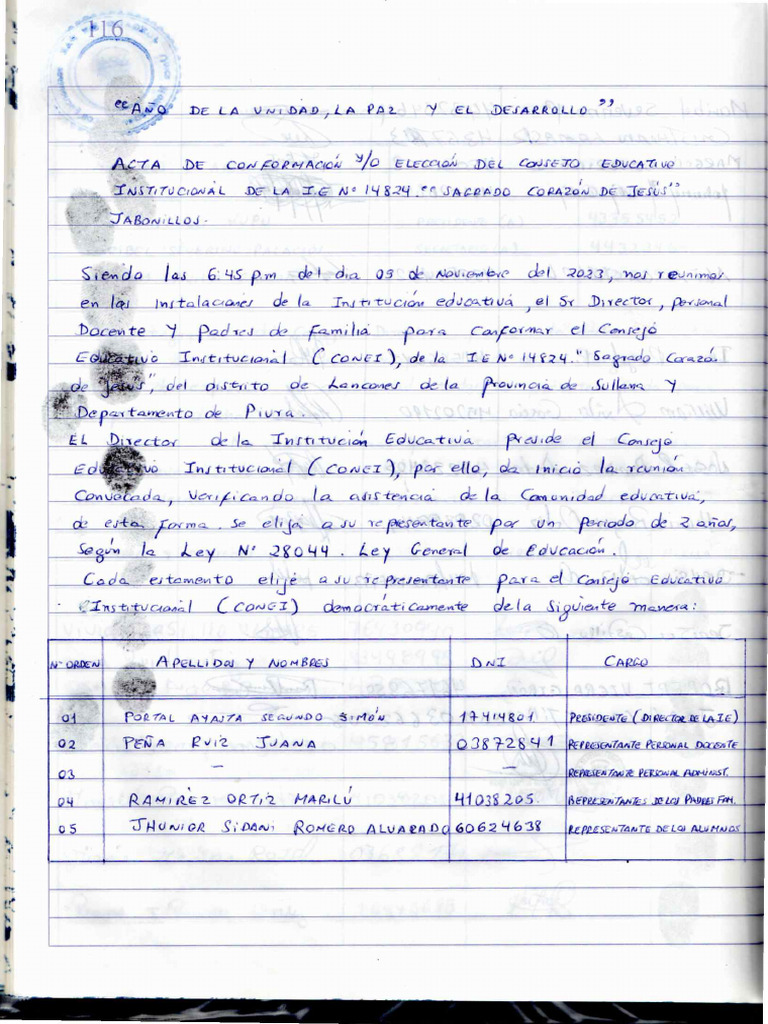 116
"AÑO DE LA UNIDAD, LA PAZ Y EL DESARROLLO"
ACTA DE CONFORMACIÓN Y/O ELECCIÓN DEL CONSEJO EDUCATIVO
INSTITUCIONAL DE LA I.E Nº 14824. "SAGRADO CORAZÓN DE JESÚS"
JABONILLOS.
Siendo las 6:45 pm del dia 09 de Noviembre del 2023, nos reunimos
en las instalaciones de la Institución educativa, el Sr Director, personal
Docente Y padres de familia para conformar el Consejo
Educativo Institucional (CONEI), de la I.E Nº 14824. "Sagrado Corazón
de Jesús", del distrito de Lancones de la Provincia de Sullana Y
Departamento de Piura.
EL Director de la Institución Educativa preside el Consejo
Educativo Institucional (CONEI), por ello, da inicio la reunión
Convocada, verificando la asistencia de la Comunidad educativa,
de esta forma se elijá a su representante por un periodo de 2 años,
Según la Ley Nº 28044. Ley General de Educación.
Cada estamento elije a su representante para el Consejo Educativo
Institucional (CONEI) democráticamente de la siguiente manera:
Nº ORDEN APELLIDOS Y NOMBRES DNI CARGO
01 PORTAL AYASTA SEGUNDO SIMÓN 17414801 PRESIDENTE (DIRECTOR DE LA IE)
02 PEÑA RUIZ JUANA 03872841 REPRESENTANTE PERSONAL DOCENTE
03 — — REPRESENTANTE PERSONAL ADMINIST.
04 RAMIREZ ORTIZ MARILÚ 41038205. REPRESENTANTES DE LOS PADRES FAM.
05 JHUNIOR SIDANI ROMERO ALVARADO 60624638 REPRESENTANTE DE LOS ALUMNOS